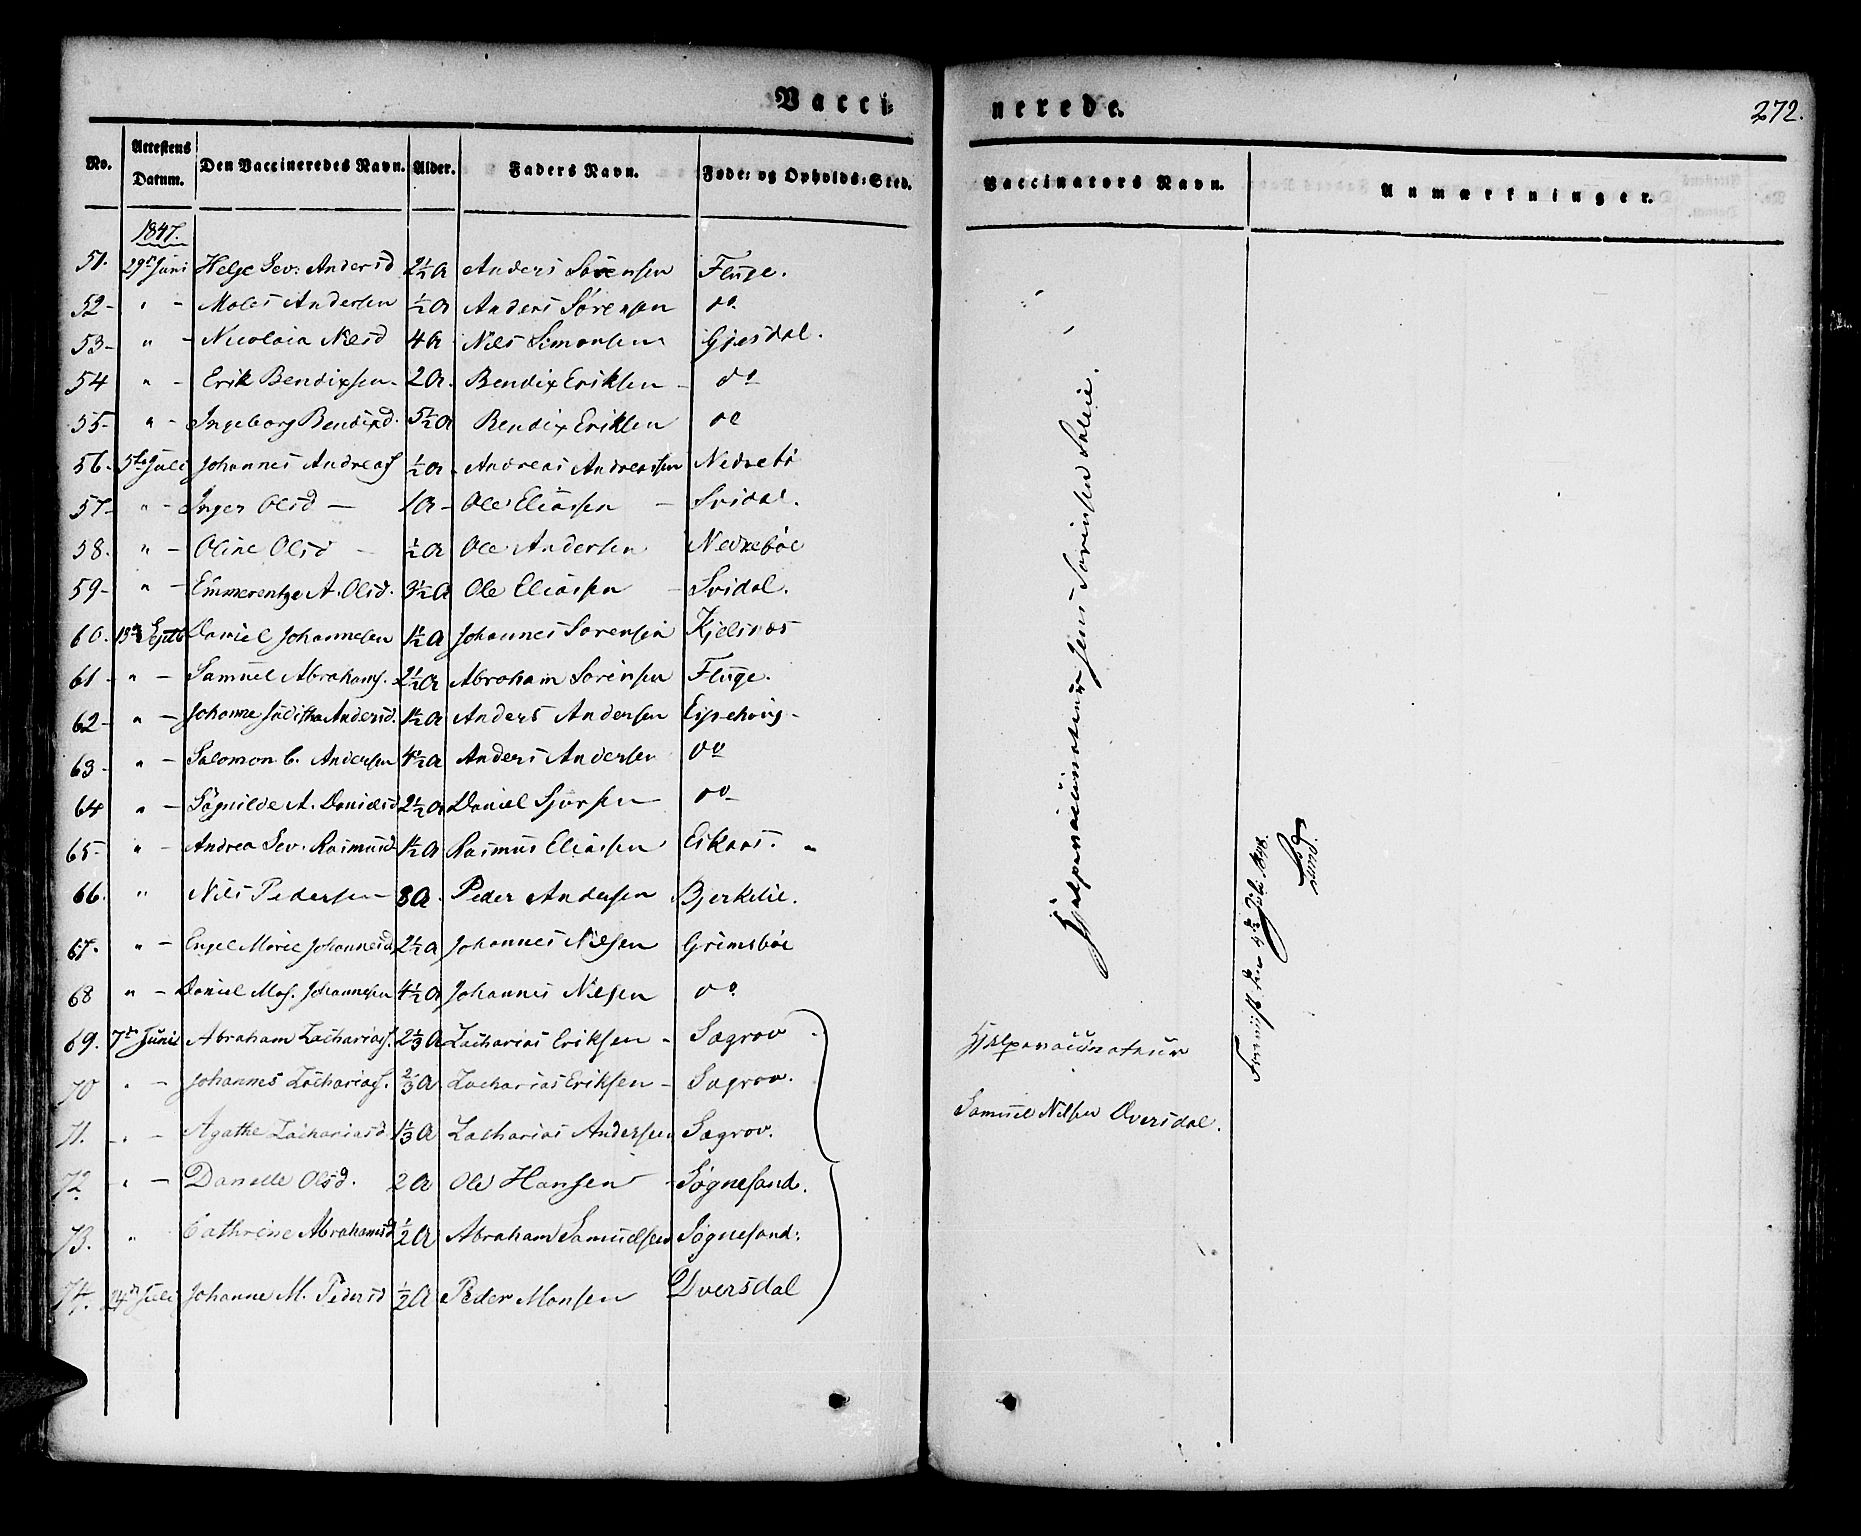 Vacci=
No. Attestens Datum. Den Vaccineredes Navn. Alder. Faders Navn. Føde= og Opholds=Sted.
1847.
51. 29de Juni Helge Sev: Andersd 2½ a Anders Sørensen Fluge.
52- " - Andersen ½ a Anders Sørensen do
53- " - Nicolaia Nilsd 4 a Nils Simonsen Gjesdal.
54 " - Erik Bendixsen - 2 a. Bendix Eriksen - do
55- " - Ingeborg Bendixd. 5½ a Bendix Eriksen do
56- 5te Juli Johannes Andreas. ½ a - Andreas Andreassen Nedrebö
57- " - Inger Olsd - 1 a - Ole Eliassen - Svidal.
58. " - Oline Olsd - ½ a Ole Andersen Nedreböe
59- " - Emmerentze A. Olsd. 3½ a Ole Eliassen - Svidal.
60. Septb Daniel Johannesen 1½ a Johannes Sørensen Kjelsnæs
61- " - Samuel Abrahams. 2½ a Abraham Sørensen Fluge.
62- " - Johanne Andersd. 1½ a Anders Andersen
63- " - Salomon C. Andersen 4½ a Anders Andersen do
64 " - A. Danielsd 2½ a Daniel do -
65- " - Andrea Sev. Rasmusd 1½ a Rasmus Eliassen Eikaas.
66. " Nils Pedersen - 8 a. Peder Andersen Bjerkelie.
67. " - Engel Marie Johannesd 2½ a Johannes Nilsen Grimsböe
68 " - Daniel Mas. Johannesen 4½ a Johannes Nilsen do
69. 7de Juni Abraham Zacharias. 2⅓ a Zacharias Eriksen - Sægrov
70 " - Johannes Zacharias. ⅔ a Zacharias Eriksen - Sægrov.
71. " - Agathe Zachariasd 1⅓ a Zacharias Andersen Sægrov.
72. " - Danielle Olsd. 2 a Ole Hansen - Søgnesand.
73. " Cathrine Abrahamsd ½ a Abraham Samuelsen Søgnesand:
74. 24de Juli Johanne M. Pedersd ½ a Peder Monsen Dvergsdal
nerede.
272.
Vaccinators Navn. Anmærkninger.
Hjelpevaccinateur Jens Sørensen
Hjelpevaccinateur
Samuel Nilsen Dversdal.
den 4de Juli 1848.
Lund.